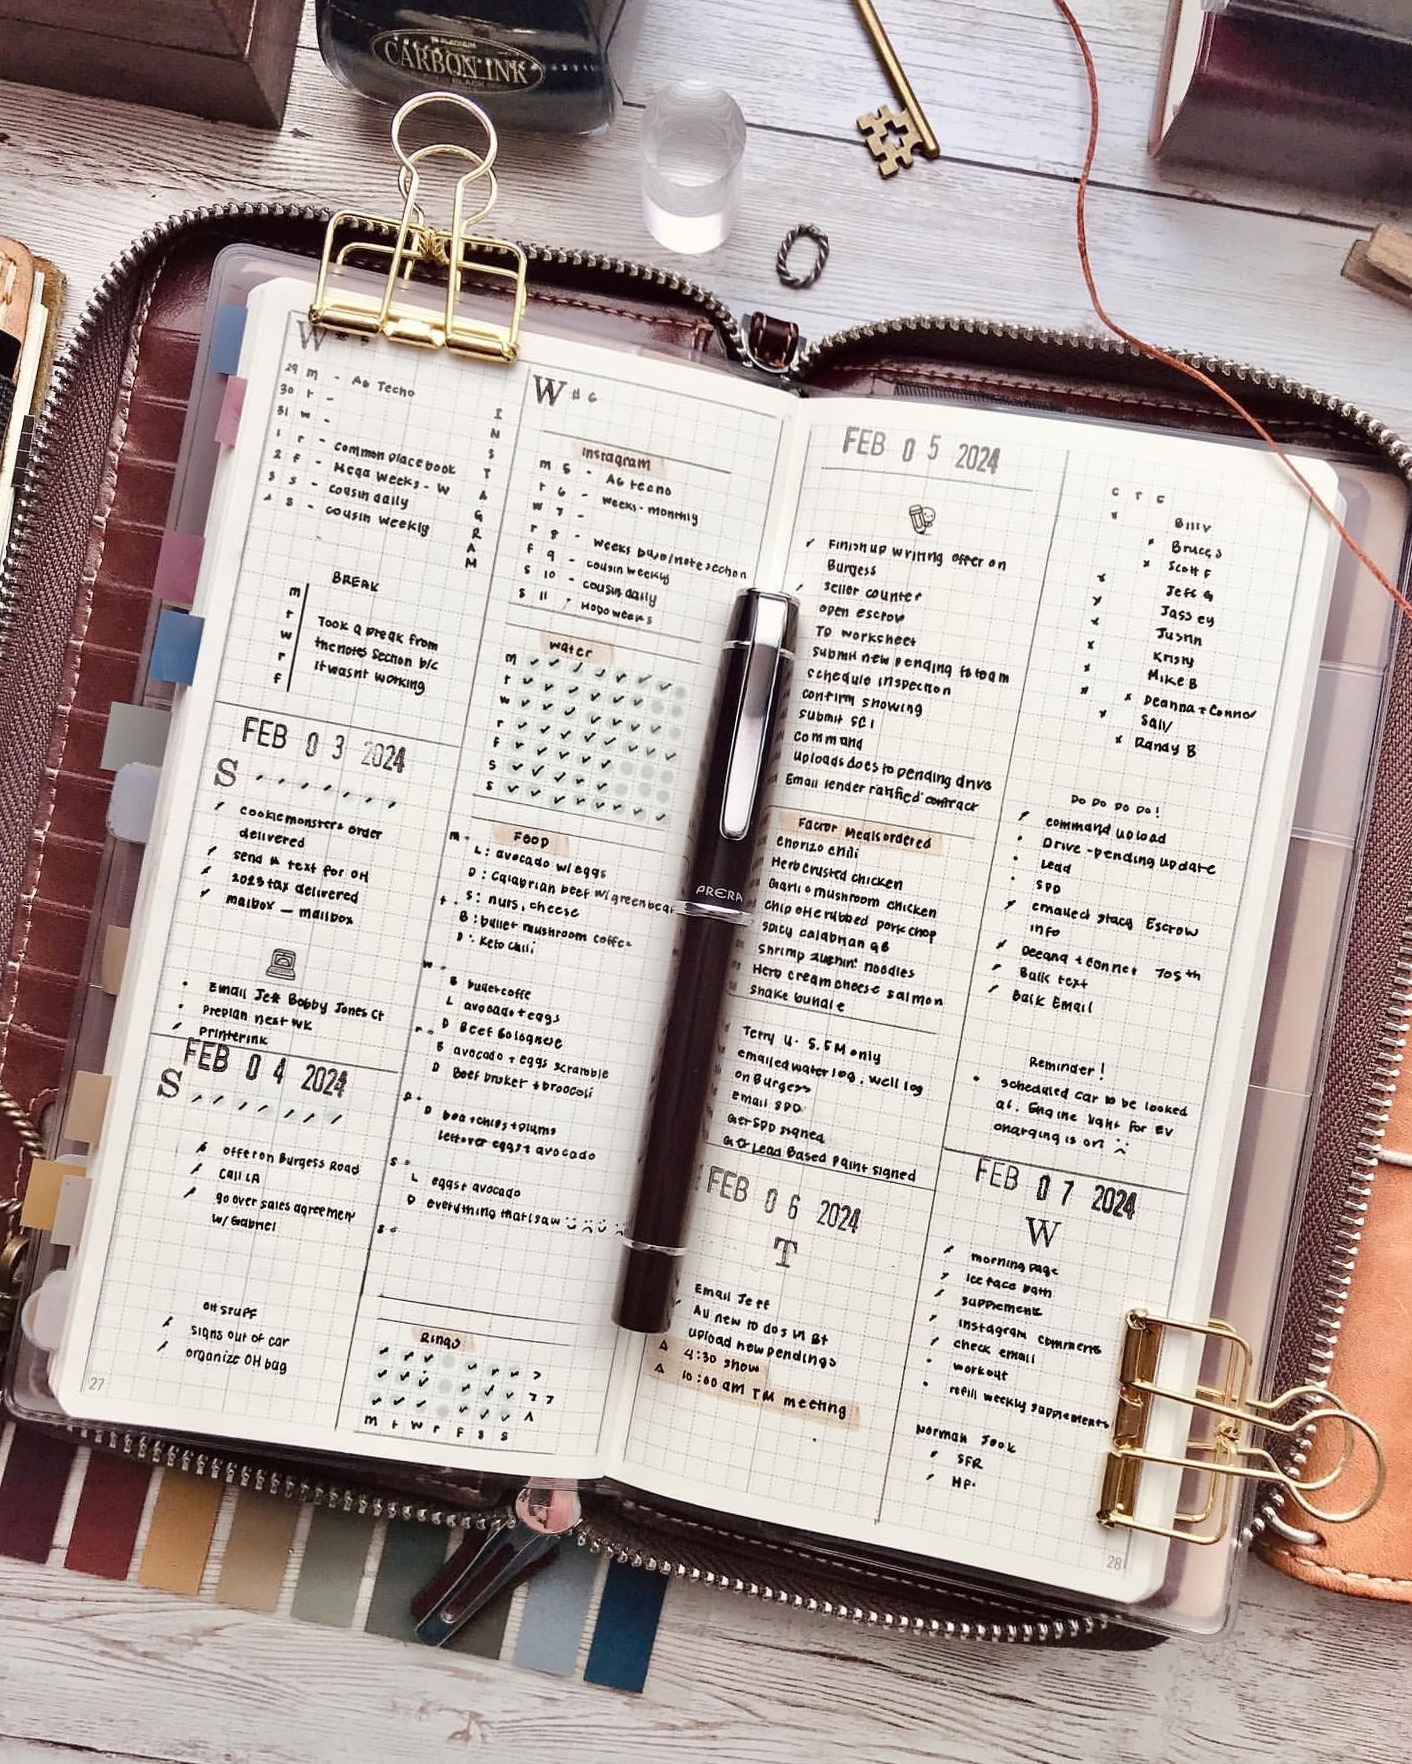 PLATINUM
CARBON INK
W
29 m - A6 Techo
30 t -
31 w -
1 r - common place book
2 f - Mega Weeks - W
3 s - cousin daily
4 s - cousin weekly
INSTAGRAM
BREAK
m
t
w
r
f
Took a break from
the notes section b/c
it wasnt working
FEB 03 2024
S
cookiemonsters order
delivered
send # text for OH
2023 tax delivered
mailbox - mailbox
Email Jeff Bobby Jones Ct
Preplan next wk
Printer ink
FEB 04 2024
S
offer on Burgess Road
Call LA
go over sales agreement
w/ Gabriel
OH STUFF
signs out of car
organize OH bag
27
W #6
instagram
m 5 - A6 Techo
t 6 - weeks - monthly
w 7 -
r 8 - weeks
f 9 - cousin weekly
s 10 - cousin daily
s 11 - Hobo weeks
water
m
t
w
r
f
s
s
FOOD
m - L: avocado w/ eggs
D: Calabrian beef w/ green bean
t - S: nuts, cheese
B: bullet mushroom coffee
D: Keto chili
w -
B bullet coffe
L avocado + eggs
D Beef Bolognese
r -
B avocado + eggs scramble
D Beef + broccoli
f -
leftover eggs + avocado
s -
L eggs + avocado
D everything that i saw
s -
Rings
m t w r f s s
PRERA
FEB 05 2024
Finish up writing offer on
Burgess
seller counter
open escrow
TD worksheet
submit new pending to team
schedule inspection
confirm showing
submit SC1
command
upload docs to pending drive
Email lender ratified contract
Factor Meals ordered
chorizo chili
Herb crusted chicken
Garlic mushroom chicken
chipotle rubbed pork chop
spicy calabrian
shrimp zuchini noodles
Herb cream cheese salmon
snake bundle
Terry U. S. FM only
emailed water log, well log
on Burgess
email SPD
Get SPD signed
Get Lead Based Paint signed
FEB 06 2024
T
Email Jeff
All new to dos in Bt
upload new pendings
4:30 show
10:00 am TM meeting
C T C
Billy
Scott F
Jeff G
Justin
Kristy
Mike B
Deanna + Connor
Sally
Randy B
DO DO DO DO!
command upload
Drive - pending update
Lead
SPD
emailed stacy Escrow
info
Deeana + Conner 705th
Balk text
Balk Email
Reminder!
scheduled car to be looked
at. Engine light for EV
charging is on!
FEB 07 2024
W
morning page
ice face bath
supplement
instagram comments
check email
workout
refill weekly supplements
Norman Jook
SFR
28